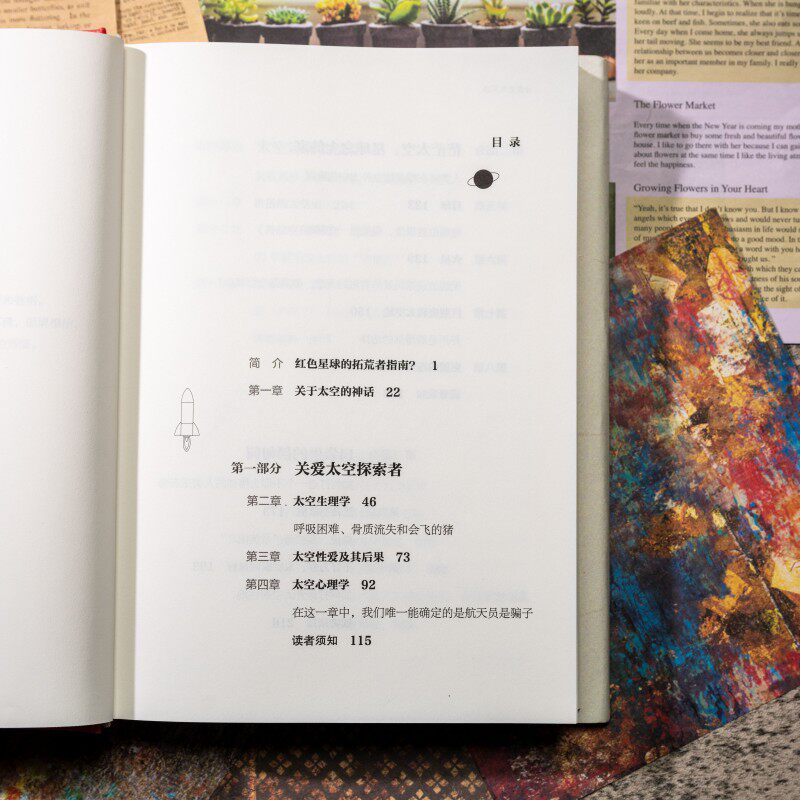 目 录
简 介 红色星球的拓荒者指南？ 1
第一章 关于太空的神话 22
第一部分 关爱太空探索者
第二章 太空生理学 46
呼吸困难、骨质流失和会飞的猪
第三章 太空性爱及其后果 73
第四章 太空心理学 92
在这一章中，我们唯一能确定的是航天员是骗子
读者须知 115
familiar with her characteristics. When she is hung
loudly. At that time, I begin to realize that it's time
keen on beef and fish. Sometimes, she also
Every day when I come home, she always jumps
her tail moving. She seems to be my best friend. A
relationship between us becomes closer and closer
her as an important member in my family. I really
her company.
The Flower Market
Every time when the New Year is coming my mot
flower market to buy some fresh and beautiful flow
house. I like to go there with her because I can gai
about flowers at the same time I like the living atm
feel the happiness.
Growing Flowers in Your Heart
"Yeah, it's true that I don't know you. But I know
angels which ever would never tur
many people usiasm in life would
of my to a good mood. In t
a word with you he
ought us."
with which they c
ness of his so
ng the sight of
ce of it.